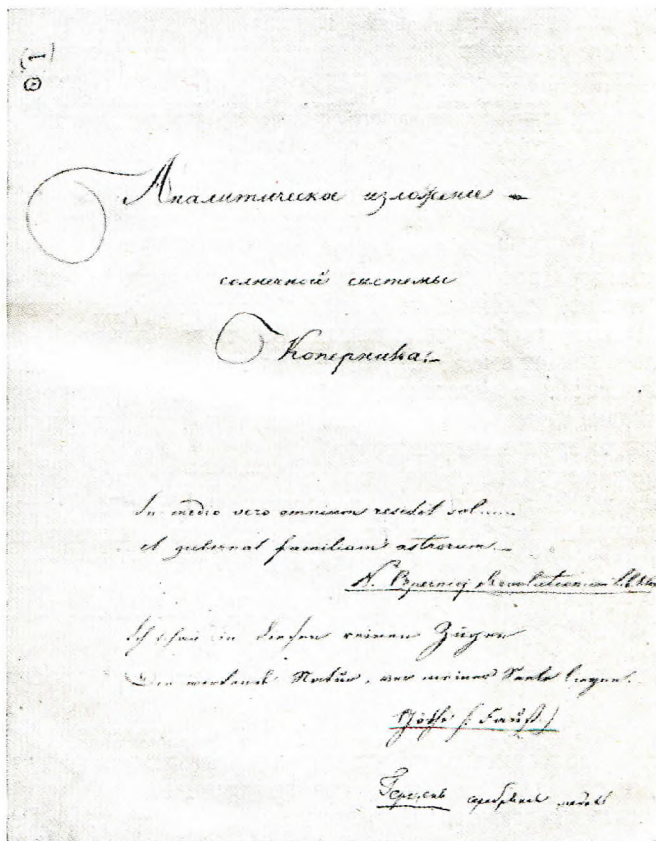 Аналитическое изложение
солнечной системы
Коперника.
In medio vero omnium residet sol.....
et gubernat familiam astrorum...
N. Revolution
Ich schau in diesen reinen Zügen
Die wirkende Natur, vor meiner Seele liegen.
Göthe (Faust)
Герцен